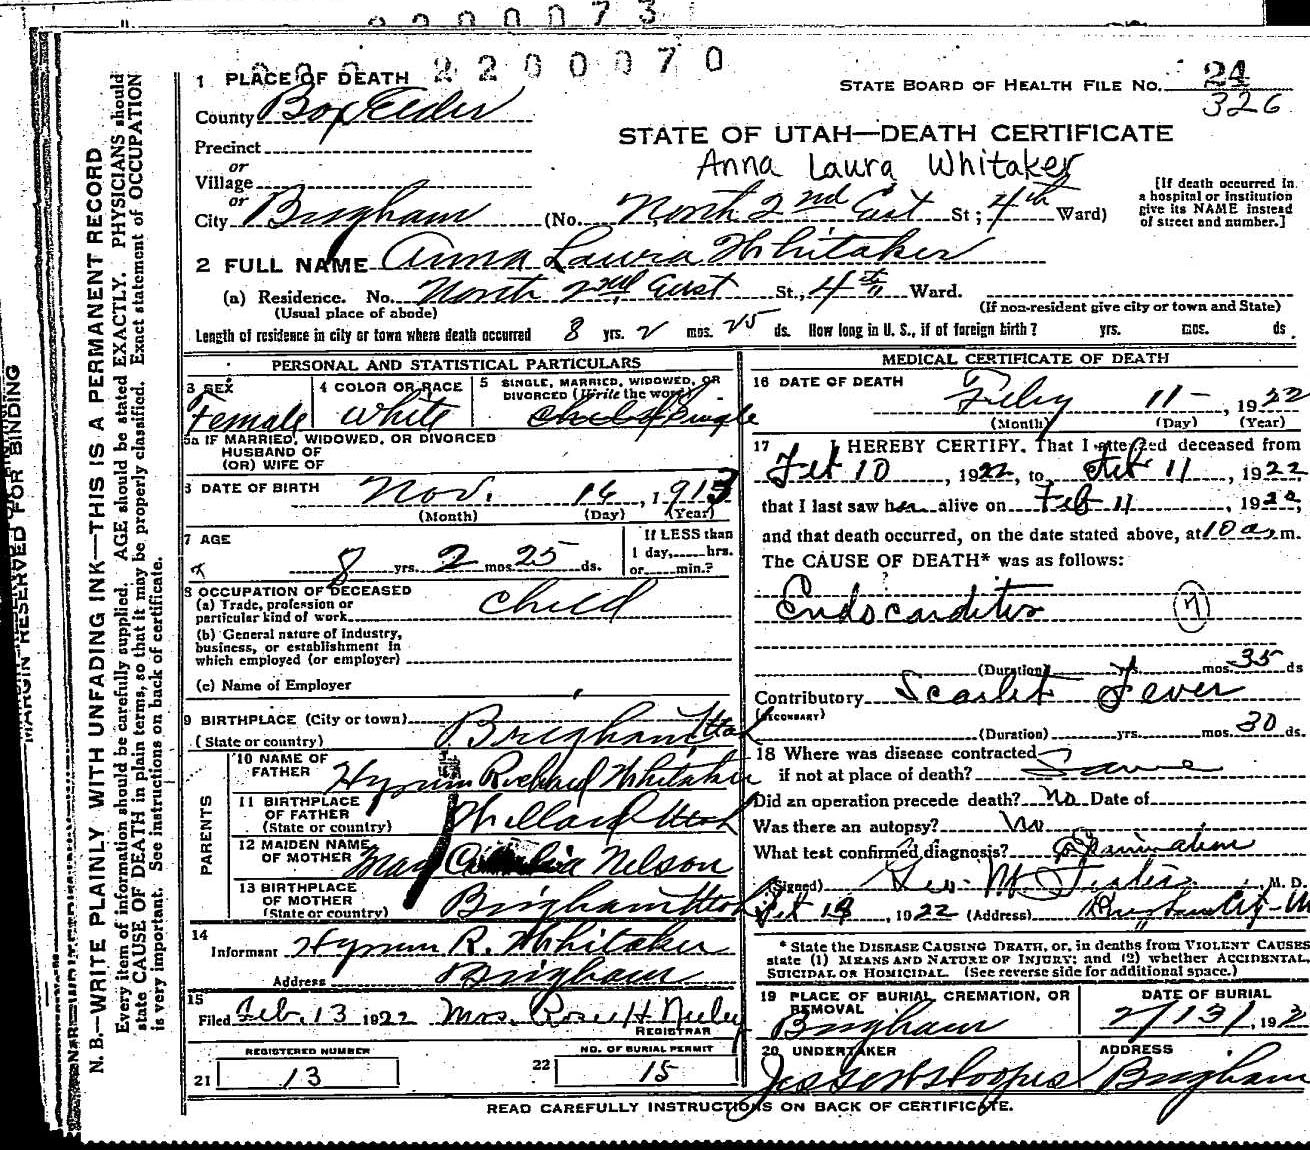 2200073
000 2200070
1 PLACE OF DEATH
STATE BOARD OF HEALTH FILE No. 24
326
County Box Elder
STATE OF UTAH—DEATH CERTIFICATE
Precinct
Anna Laura Whitaker
or
Village
or
City Brigham (No. North 2nd East St; 4th Ward)
[If death occurred in
a hospital or institution
give its NAME instead
of street and number.]
2 FULL NAME Anna Laura Whitaker
(a) Residence. No. North 2nd East St., 4th Ward.
(Usual place of abode) (If non-resident give city or town and State)
Length of residence in city or town where death occurred 8 yrs. 2 mos. 25 ds. How long in U. S., if of foreign birth? yrs. mos. ds.
PERSONAL AND STATISTICAL PARTICULARS
3 SEX
Female
4 COLOR OR RACE
White
5 SINGLE, MARRIED, WIDOWED, OR
DIVORCED (Write the word)
Child Single
5a IF MARRIED, WIDOWED, OR DIVORCED
HUSBAND OF
(OR) WIFE OF
DATE OF BIRTH Nov. 16, 1913
(Month) (Day) (Year)
7 AGE
8 yrs. 2 mos. 25 ds.
If LESS than
1 day, hrs.
or min.?
8 OCCUPATION OF DECEASED
(a) Trade, profession or
particular kind of work child
(b) General nature of industry,
business, or establishment in
which employed (or employer)
(c) Name of Employer
9 BIRTHPLACE (City or town)
(State or country) Brigham, Utah
PARENTS
10 NAME OF
FATHER Hyrum Richard Whitaker
11 BIRTHPLACE
OF FATHER
(State or country) Willard Utah
12 MAIDEN NAME
OF MOTHER May Nelson
13 BIRTHPLACE
OF MOTHER
(State or country) Brigham Utah
14
Informant Hyrum R. Whitaker
Address Brigham
15
Filed Feb. 13 1922 Mrs. Rose H. Neeley
REGISTRAR
REGISTERED NUMBER
21 13
NO. OF BURIAL PERMIT
22 15
MEDICAL CERTIFICATE OF DEATH
16 DATE OF DEATH
Feby 11-, 1922
(Month) (Day) (Year)
17 I HEREBY CERTIFY, That I attended deceased from
Feb 10, 1922, to Feb 11, 1922
that I last saw her alive on Feb 11 1922,
and that death occurred, on the date stated above, at 10 a.m.
The CAUSE OF DEATH* was as follows:
Endocarditis 7
(Duration) yrs. mos. 35 ds
Contributory Scarlet Fever
(SECONDARY)
(Duration) yrs. mos. 30 ds.
18 Where was disease contracted
if not at place of death? Same
Did an operation precede death? No Date of
Was there an autopsy? No
What test confirmed diagnosis? Examination
(Signed) M. D.
1922 (Address)
* State the DISEASE CAUSING DEATH, or, in deaths from VIOLENT CAUSES
state (1) MEANS AND NATURE OF INJURY; and (2) whether ACCIDENTAL,
SUICIDAL OR HOMICIDAL. (See reverse side for additional space.)
19 PLACE OF BURIAL, CREMATION, OR
REMOVAL
Brigham
DATE OF BURIAL
2/13/, 192
20 UNDERTAKER
ADDRESS
Brigham
READ CAREFULLY INSTRUCTIONS ON BACK OF CERTIFICATE.
MARGIN RESERVED FOR BINDING
N. B.—WRITE PLAINLY WITH UNFADING INK—THIS IS A PERMANENT RECORD
Every item of information should be carefully supplied. AGE should be stated EXACTLY. PHYSICIANS should
state CAUSE OF DEATH in plain terms, so that it may be properly classified. Exact statement of OCCUPATION
is very important. See instructions on back of certificate.